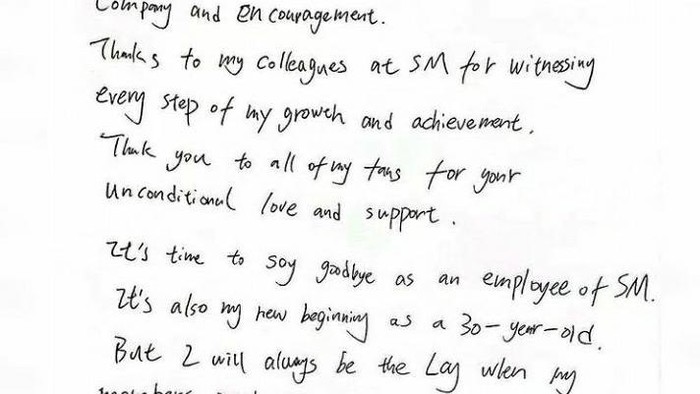 Company and encouragement.
Thanks to my colleagues at SM for witnessing
every step of my growth and achievement.
Thank you to all of my fans for your
unconditional love and support.
It's time to say goodbye as an employee of SM.
It's also my new beginning as a 30-year-old.
But I will always be the Lay when my